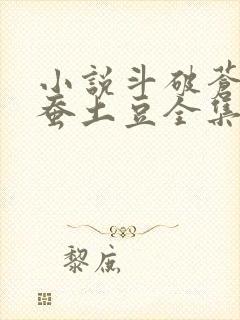 小説斗破蒼
蚕土豆全集
黎底